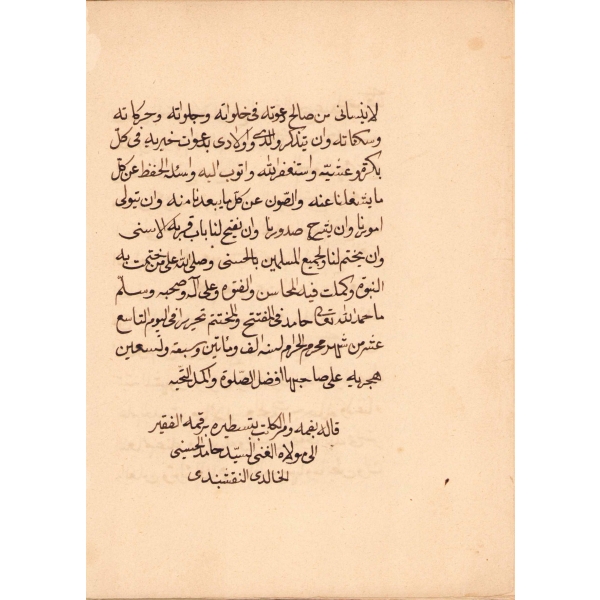 لا ينساني من صالح دعوته في خلواته وجلواته وحركاته
وسكناته وان يتذكر والدي واولادي بدعوات خيرية في كل
بكرة وعشية واستغفر الله واتوب اليه واسئله الحفظ عن كل
ما يشغلنا عنه والصون عن كل ما يبعدنا منه وان يتولى
امورنا وان يشرح صدورنا وان يفتح لنا باب قربه الاسنى
وان يختم لنا ولجميع المسلمين بالحسنى وصلى الله على من ختمت به
النبوة وكملت فيه المحاسن والفتوه وعلى آله وصحبه وسلم
ما حمد الله تعالى حامد في المفتتح والمختتم تحريرا في اليوم التاسع
عشر من شهر محرم الحرام لسنه الف ومأتين وسبعة وتسعين
هجريه على صاحبها افضل الصلوة واكمل التحيه
قاله بفمه وامر الكاتب بتسطيره برقمه الفقير
الى مولاه الغني السيد حامد الحسيني
الخالدي النقشبندي